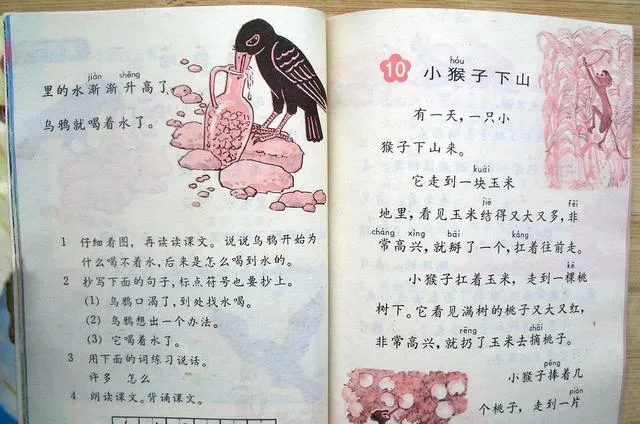 jiàn shēng
里的水渐渐升高了
乌鸦就喝着水了。
1 仔细看图,再读读课文。说说乌鸦开始为
什么喝不着水,后来是怎么喝到水的。
2 抄写下面的句子,标点符号也要抄上。
(1) 乌鸦口渴了,到处找水喝。
(2) 乌鸦想出一个办法。
(3) 它喝着水了。
3 用下面的词练习说话。
许多 怎么
4 朗读课文。背诵课文。
hóu
10 小猴子下山
有一天,一只小
猴子下山来。
kuài
它走到一块玉米
jiē fēi
地里,看见玉米结得又大又多,非
cháng xìng bāi káng
常高兴,就掰了一个,扛着往前走。
kē
小猴子扛着玉米,走到一棵桃
树下。它看见满树的桃子又大又红,
rēng zhāi
非常高兴,就扔了玉米去摘桃子。
pěng
小猴子捧着几
piàn
个桃子,走到一片